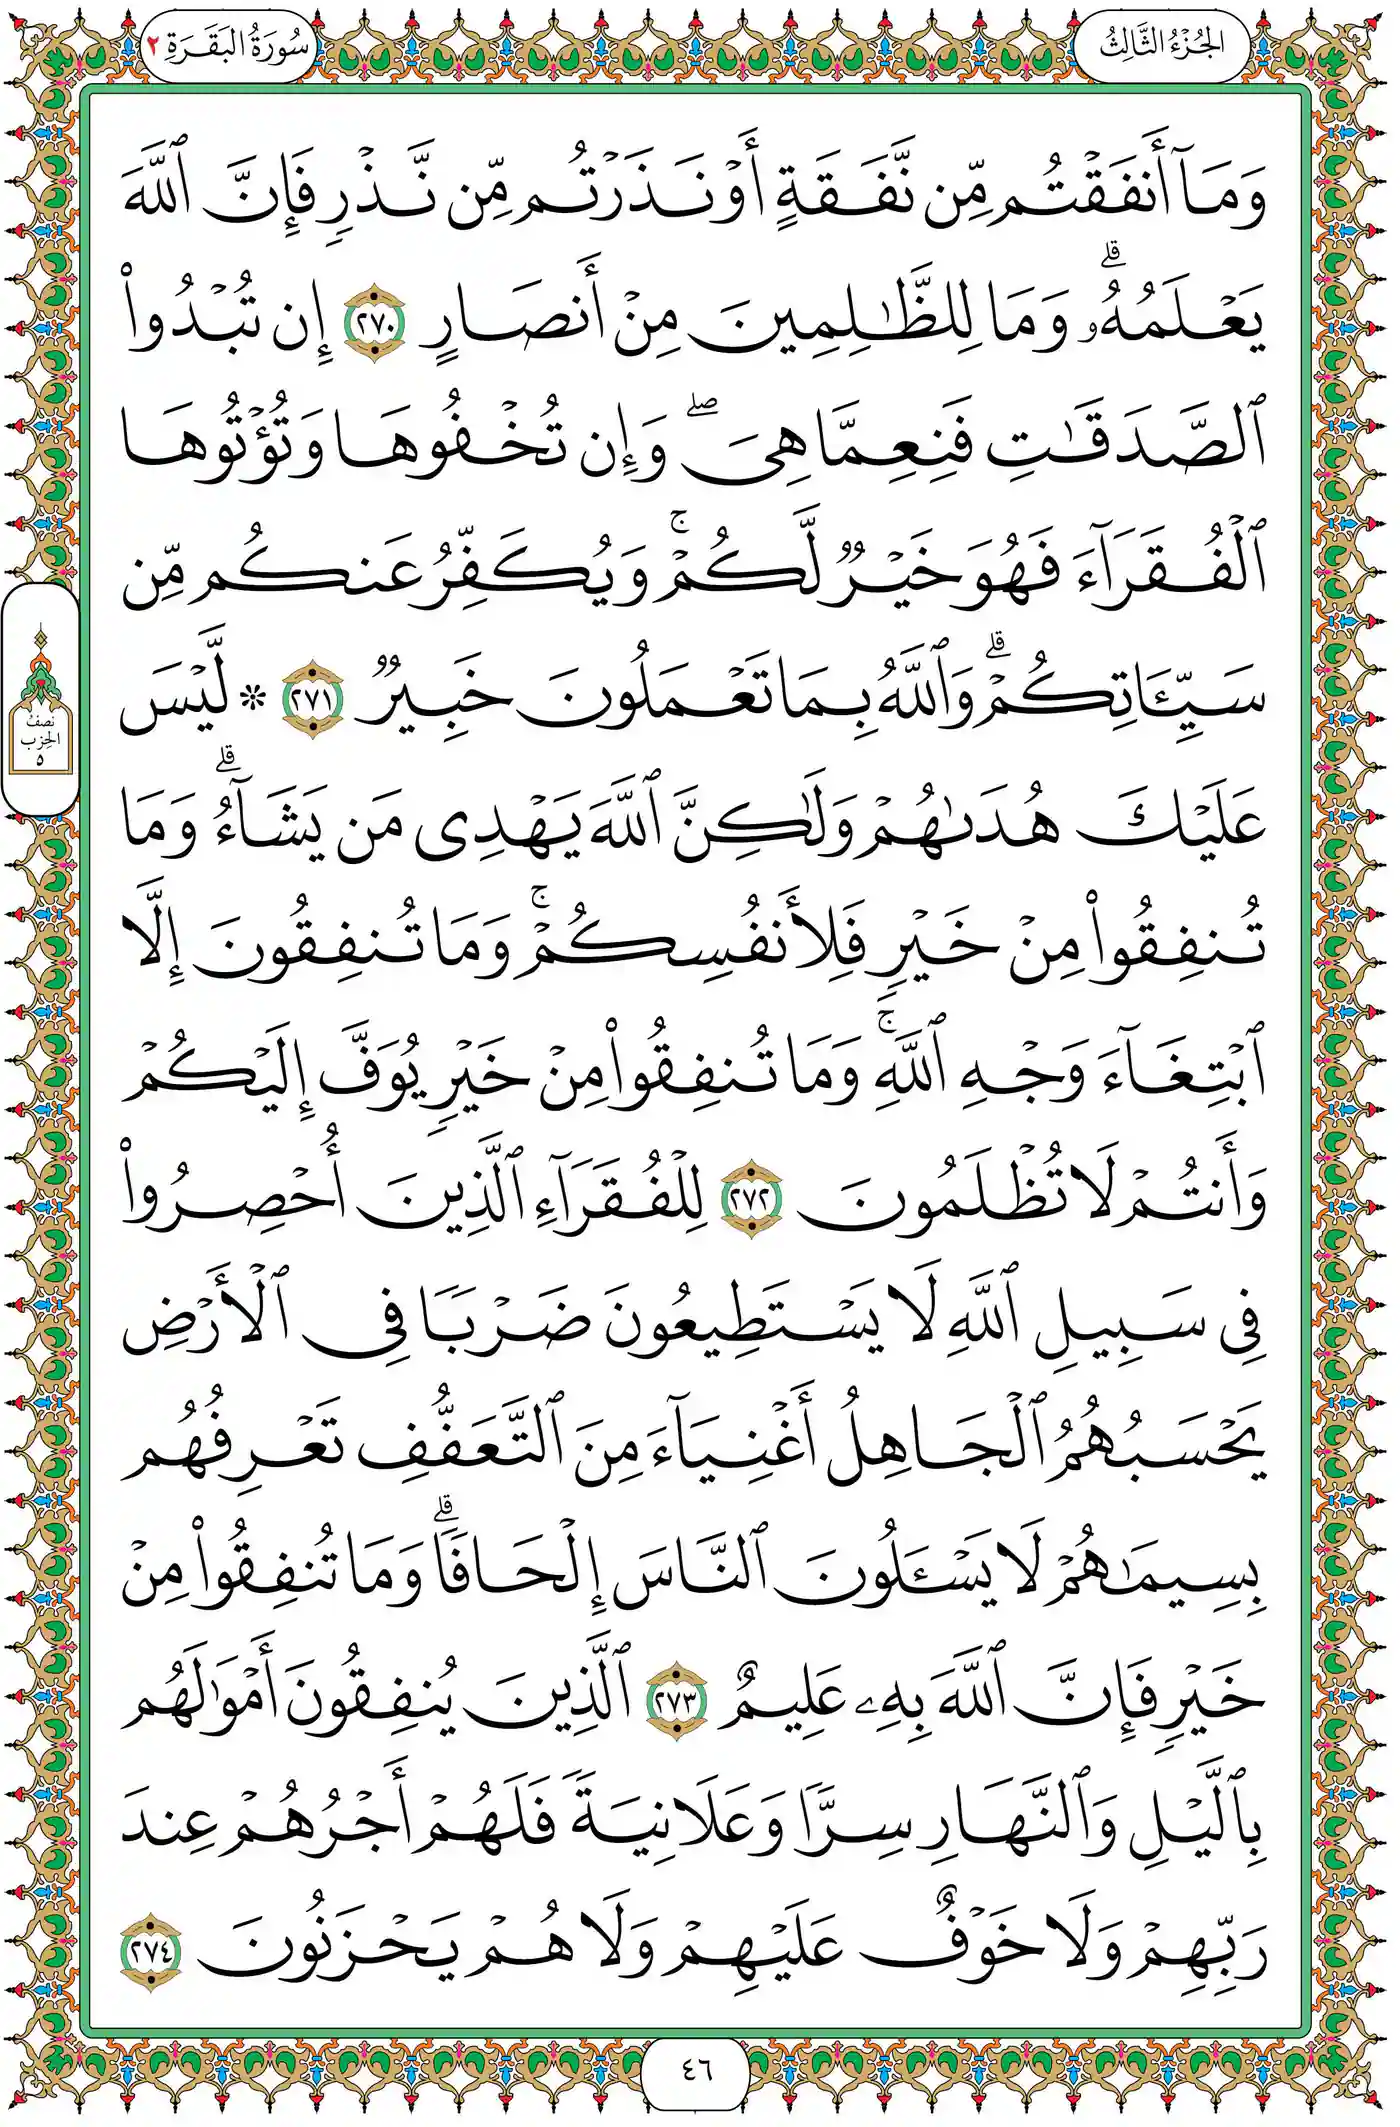 الجُزْءُ الثَّالِثُ
سُورَةُ البَقَرَةِ ٢
وَمَآ أَنفَقْتُم مِّن نَّفَقَةٍ أَوْ نَذَرْتُم مِّن نَّذْرٍ فَإِنَّ ٱللَّهَ
يَعْلَمُهُۥۗ وَمَا لِلظَّٰلِمِينَ مِنْ أَنصَارٍ ٢٧٠ إِن تُبْدُوا۟
ٱلصَّدَقَٰتِ فَنِعِمَّا هِىَۖ وَإِن تُخْفُوهَا وَتُؤْتُوهَا
ٱلْفُقَرَآءَ فَهُوَ خَيْرٌ لَّكُمْۚ وَيُكَفِّرُ عَنكُم مِّن
سَيِّـَٔاتِكُمْۗ وَٱللَّهُ بِمَا تَعْمَلُونَ خَبِيرٌ ٢٧١ ۞ لَّيْسَ
عَلَيْكَ هُدَىٰهُمْ وَلَٰكِنَّ ٱللَّهَ يَهْدِى مَن يَشَآءُۗ وَمَا
تُنفِقُوا۟ مِنْ خَيْرٍ فَلِأَنفُسِكُمْۚ وَمَا تُنفِقُونَ إِلَّا
ٱبْتِغَآءَ وَجْهِ ٱللَّهِۚ وَمَا تُنفِقُوا۟ مِنْ خَيْرٍ يُوَفَّ إِلَيْكُمْ
وَأَنتُمْ لَا تُظْلَمُونَ ٢٧٢ لِلْفُقَرَآءِ ٱلَّذِينَ أُحْصِرُوا۟
فِى سَبِيلِ ٱللَّهِ لَا يَسْتَطِيعُونَ ضَرْبًا فِى ٱلْأَرْضِ
يَحْسَبُهُمُ ٱلْجَاهِلُ أَغْنِيَآءَ مِنَ ٱلتَّعَفُّفِ تَعْرِفُهُم
بِسِيمَٰهُمْ لَا يَسْـَٔلُونَ ٱلنَّاسَ إِلْحَافًاۗ وَمَا تُنفِقُوا۟ مِنْ
خَيْرٍ فَإِنَّ ٱللَّهَ بِهِۦ عَلِيمٌ ٢٧٣ ٱلَّذِينَ يُنفِقُونَ أَمْوَٰلَهُم
بِٱلَّيْلِ وَٱلنَّهَارِ سِرًّا وَعَلَانِيَةً فَلَهُمْ أَجْرُهُمْ عِندَ
رَبِّهِمْ وَلَا خَوْفٌ عَلَيْهِمْ وَلَا هُمْ يَحْزَنُونَ ٢٧٤
نصفُ
الحِزب
٥
٤٦